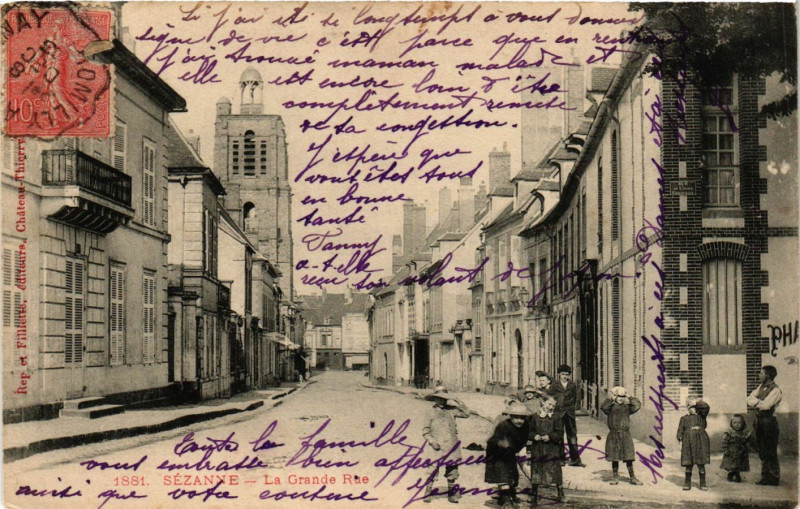 Si j'ai été si longtempt à vous donner
signe de vie c'est parce que en rentrant
j'ai trouvé maman malade et
elle est encore loin d'être
complètement remise
de sa congestion.
J'espère que
vous êtes tous
en bonne
santé
Fanny
a-t-elle
reçue son volant de jupon.
Mes respects à ces Dames
Toute la famille
vous embrasse bien affectueusement
ainsi que votre cousine Yvonne
1881. SÉZANNE — La Grande Rue
Rep et Filliette, éditeurs, Château-Thierry
ROMILLY
10
PHA